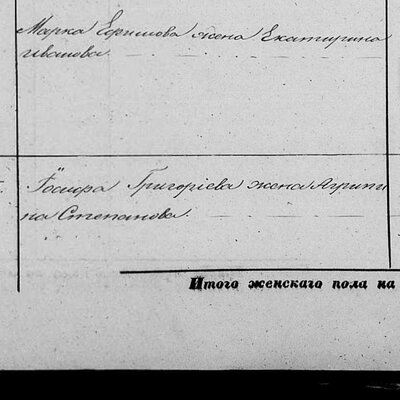 Марка Ефимова жена Екатирина
Иванова
Іосифа Григоріева жена Агрипи
на Степанова.
Итого женскаго пола на